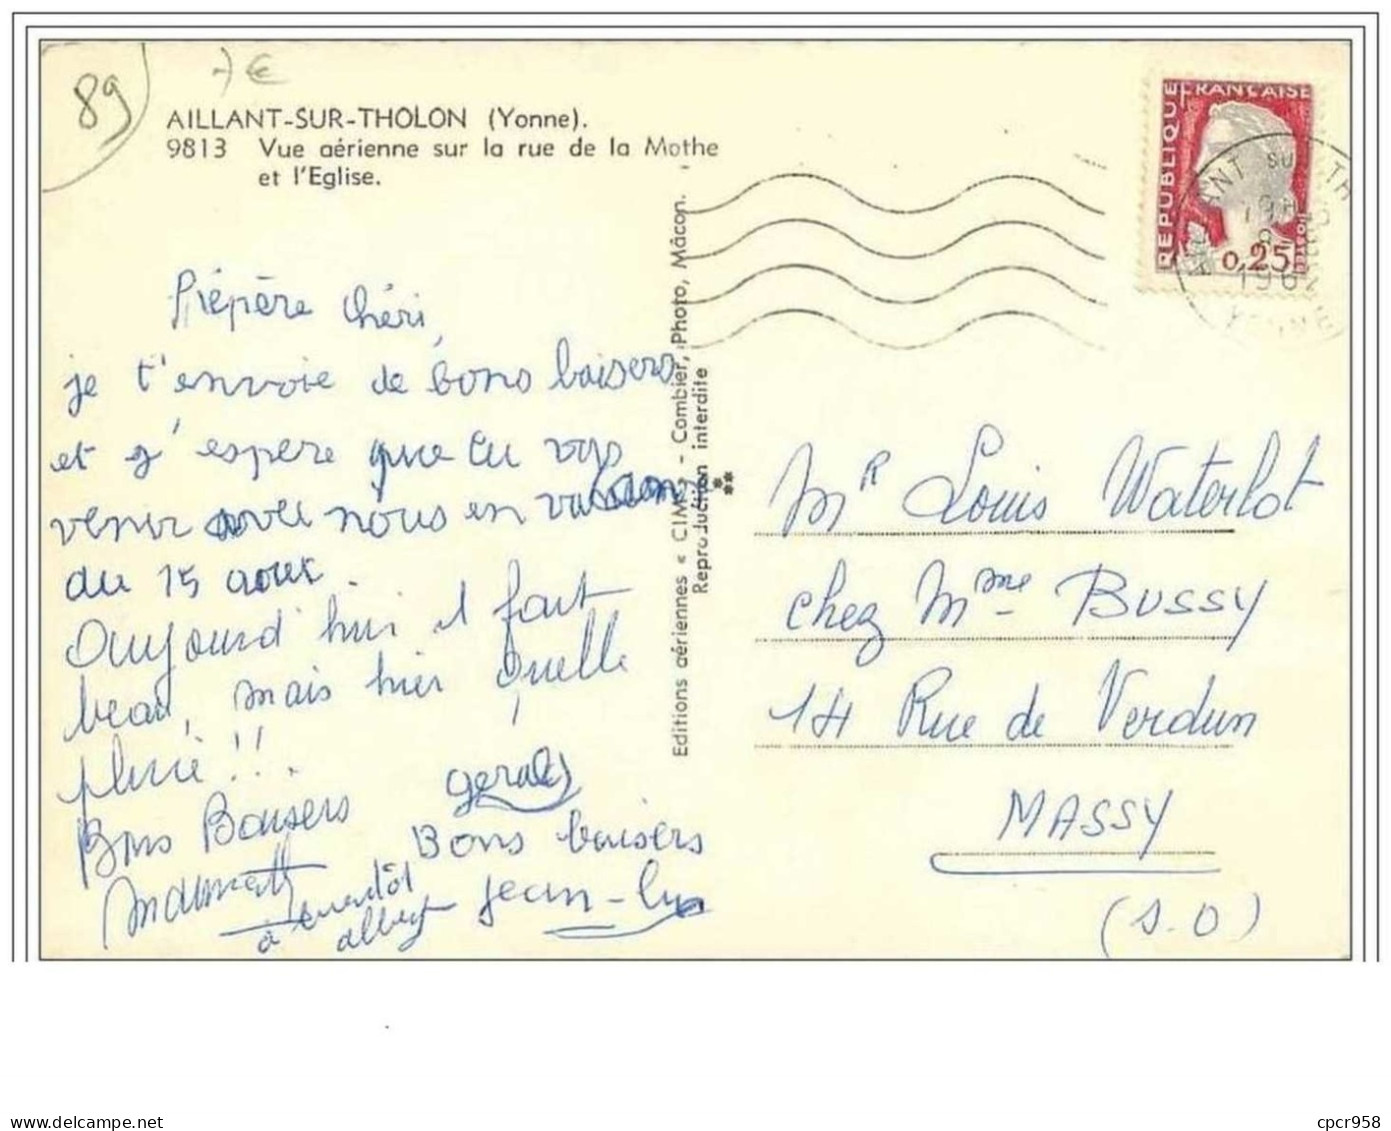 89
7€
AILLANT-SUR-THOLON (Yonne).
9813 Vue aérienne sur la rue de la Mothe
et l'Eglise.
REPUBLIQUE FRANÇAISE
0,25
1962
YONNE
Pépère chéri,
je t'envoie de bons baisers
et g'espère que tu vas
venir avec nous en
du 15 aout.
Aujourd'hui il fait
beau, mais hier quelle
pluie !!!
Bons Baisers
gerald
Bons baisers
à bientôt
albert
jean-luc
Editions aériennes « CIM » - Combier, Photo, Mâcon.
Reproduction interdite
Mr Louis Waterlot
chez Mme BUSSY
14 Rue de Verdun
MASSY
(S.O)
cpcr958